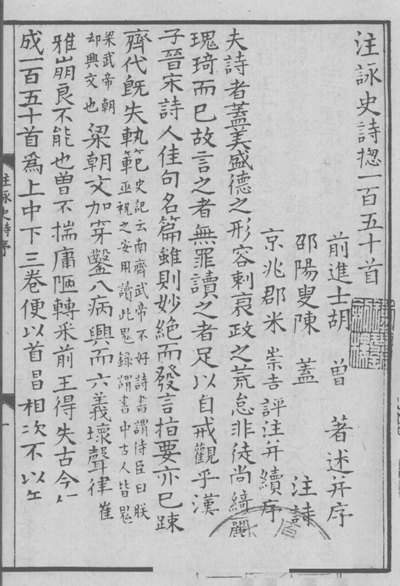 注詠史詩揔一百五十首
前進士胡 曾 著述并序
邵陽叟陳 蓋 注詩
京兆郡米 崇吉 評注并續序
夫詩者蓋美盛德之形容刺衰政之荒怠非徒尚綺麗
瑰琦而已故言之者無罪讀之者足以自戒觀乎漢
子晉宋詩人佳句名篇雖則妙絕而發言指要亦已踈
齊代旣失軌範
史記云南齊武帝不好詩書謂侍臣曰朕
巫祝之安用讀此鬼錄謂書中古人皆鬼
梁武帝朝
却興文也
梁朝文加穿鑿八病興而六義壞聲律
雅崩良不能也曾不揣庸陋轉采前王得失古今
成一百五十首爲上中下三卷便以首昌相次不以
注詠史詩序